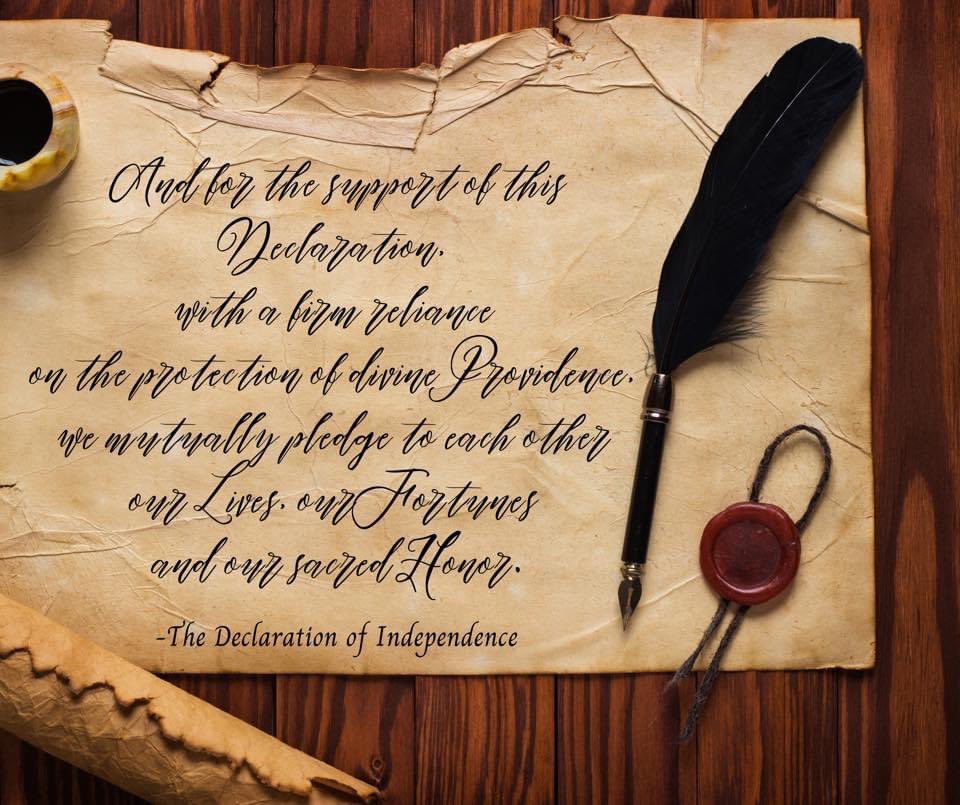 And for the support of this
Declaration,
with a firm reliance
on the protection of divine Providence,
we mutually pledge to each other
our Lives, our Fortunes
and our sacred Honor.
-The Declaration of Independence